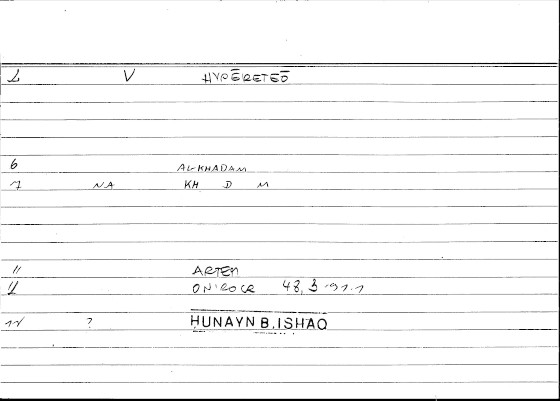 1 V HYPĒRETEŌ
6 AL-KHADAM
7 NA KH D M
11 ARTEM
ONIROCR 48,3
? HUNAYN B. ISHAQ